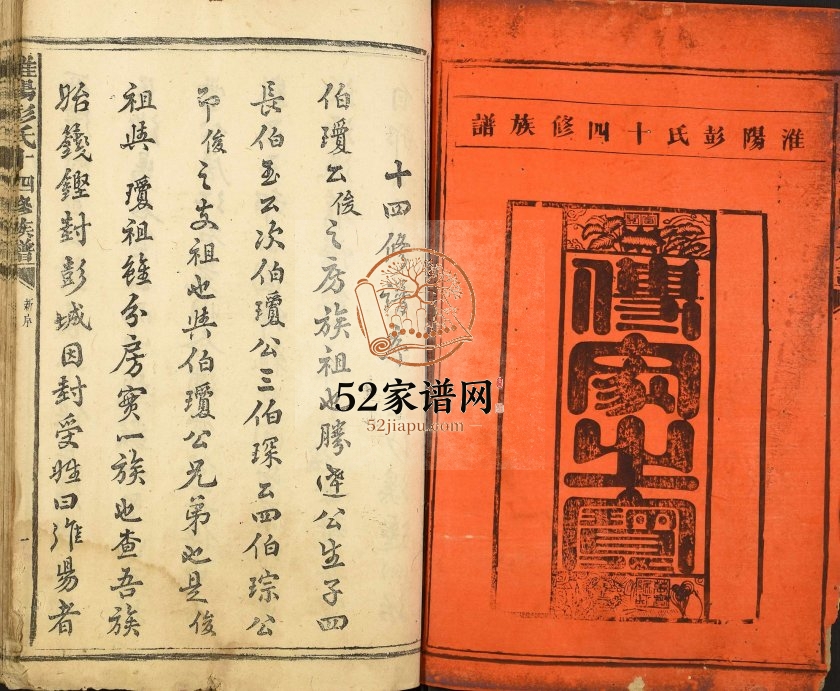 淮陽彭氏十四修族譜
傳家之寶
十四修譜序
伯瓊公俊之房族祖也勝遷公生子四
長伯玉公次伯瓊公三伯琛公四伯琮公
即俊之支祖也與伯瓊公兄弟也是俊
祖與瓊祖雖分房實一族也查吾族
始籛鏗封彭城因封受姓曰淮陽者
淮陽彭氏十四修族譜
新序
一
52家谱网
52jiapu.com